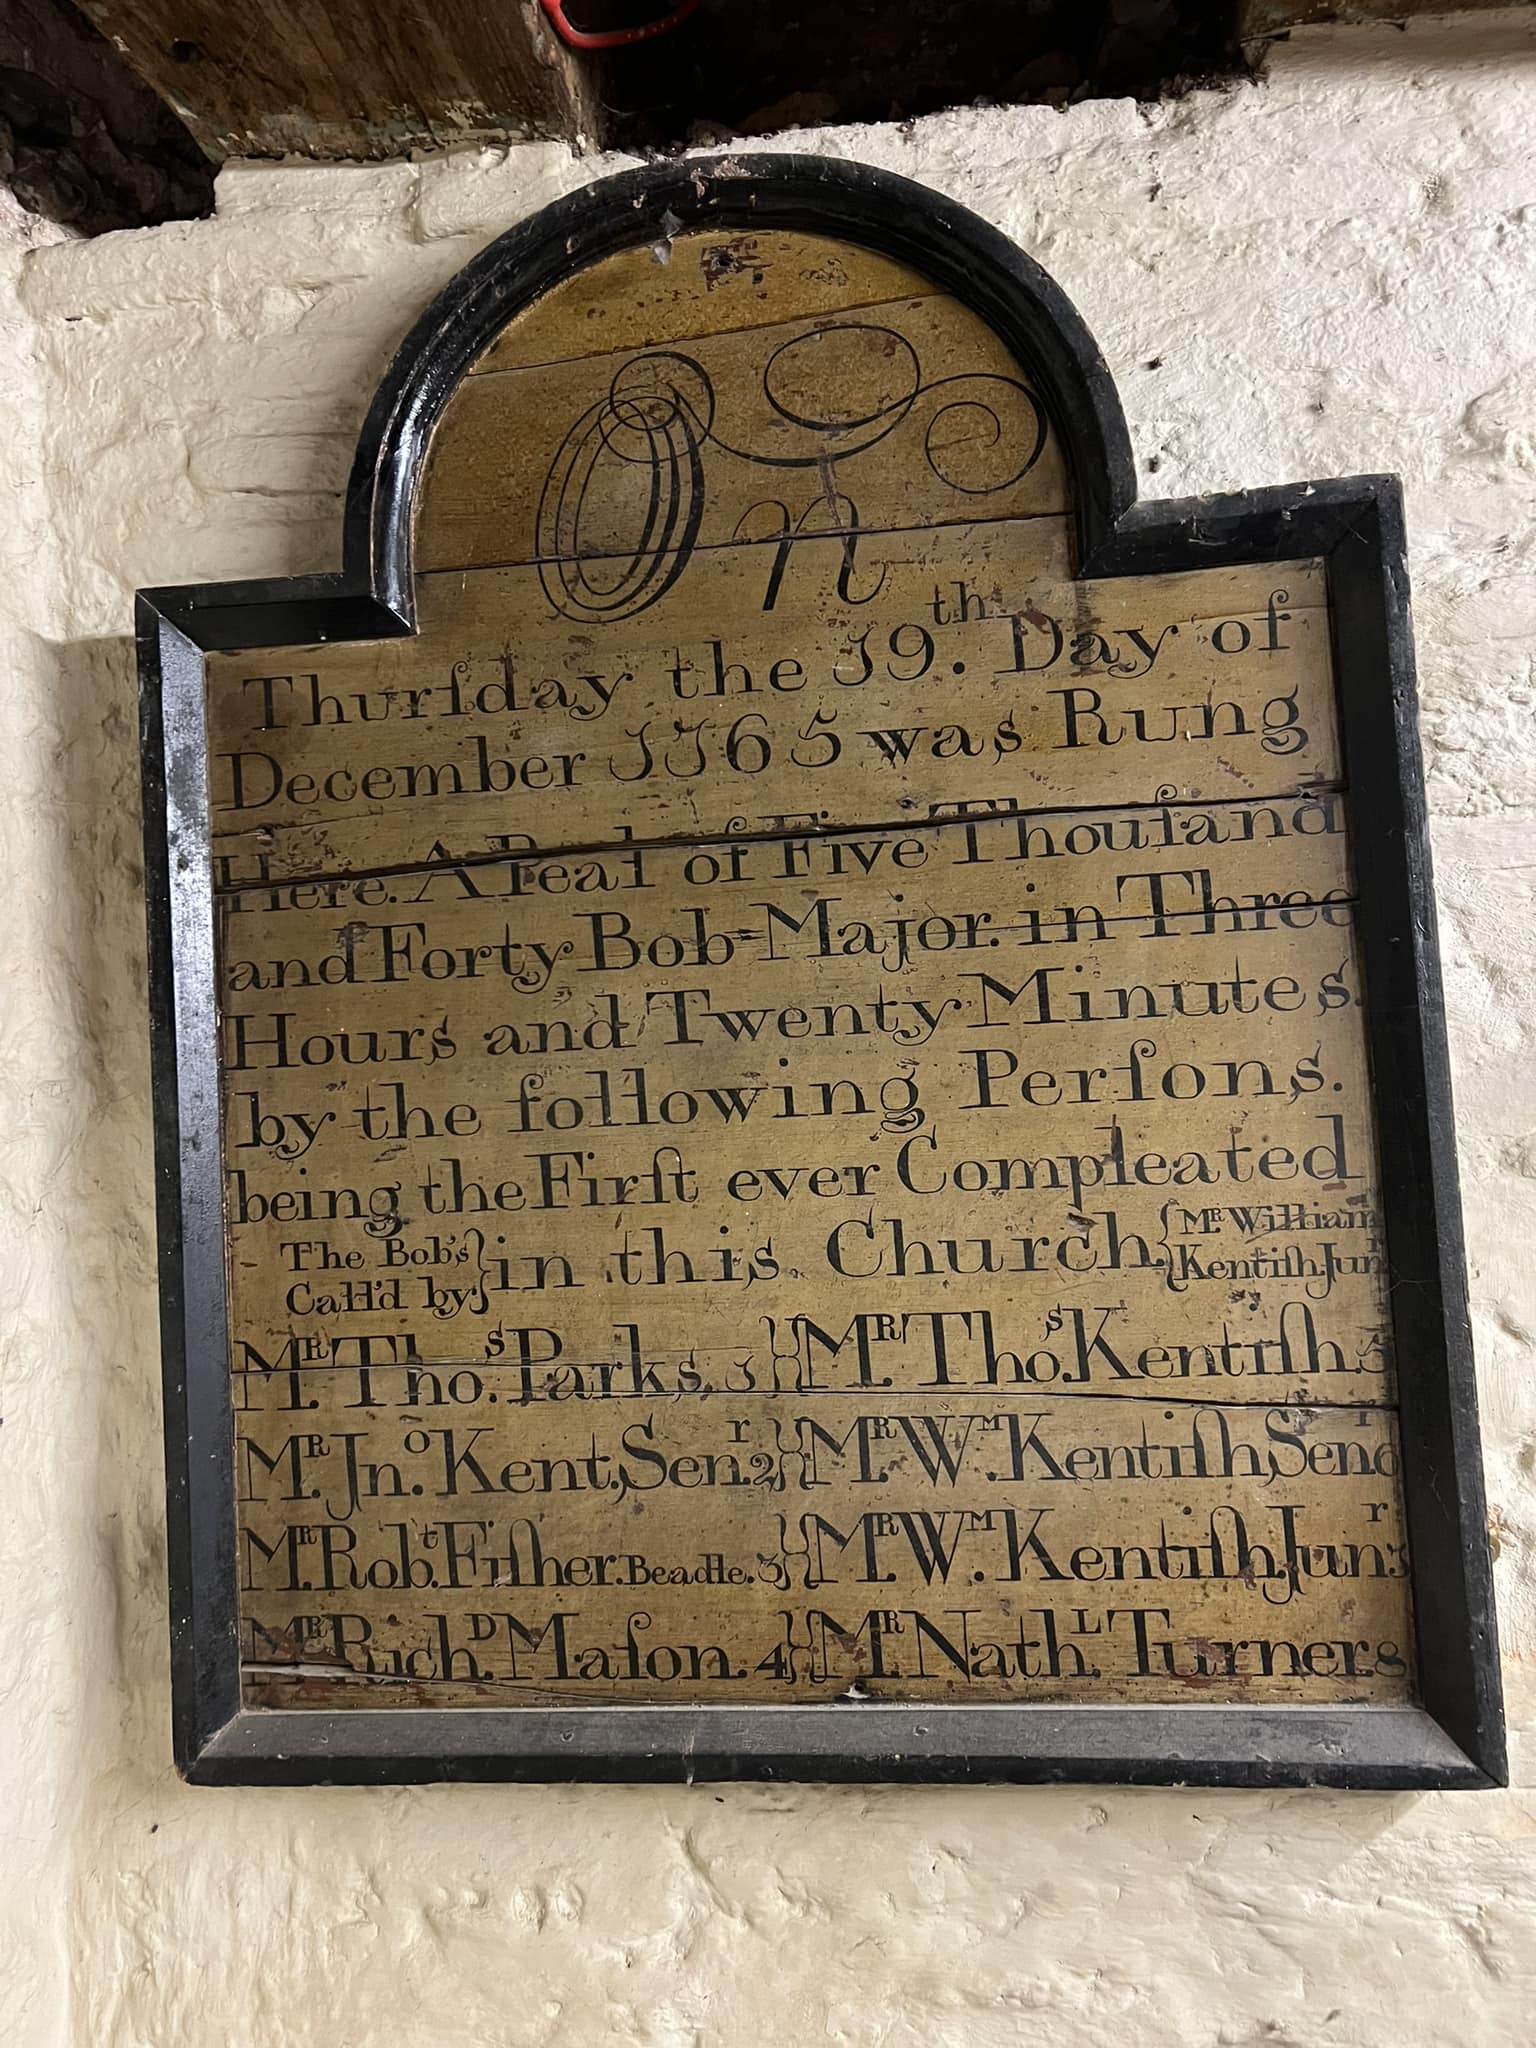 On
Thurſday the 19th. Day of
December 1765 was Rung
Here. A Peal of Five Thouſand
and Forty Bob-Major. in Three
Hours and Twenty Minutes.
by the following Perſons.
being the Firſt ever Compleated
The Bob's Call'd by. } in this Church. { Mr. William Kentiſh Junr
Mr. Thos. Parks. 1 }{ Mr. Thos. Kentiſh. 5
Mr. Jno. Kent, Senr. 2 }{ Mr. Wm. Kentiſh, Senr 6
Mr. Robt. Fiſher. Beadle. 3 }{ Mr. Wm. Kentiſh. Junr 7
Mr. Richd. Maſon. 4 }{ Mr. Nathl. Turner. 8